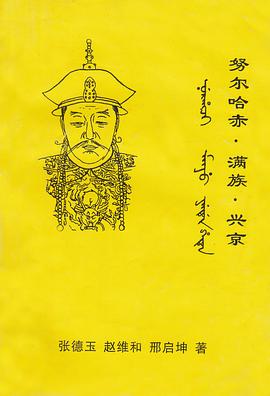 努尔哈赤·满族·兴京
张德玉 赵维和 邢启坤 著